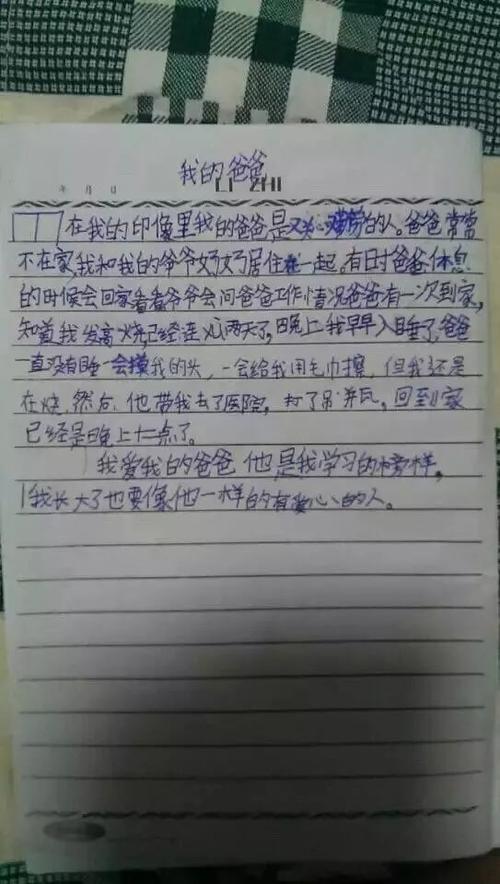 我的爸爸
年 月 日 LI ZHI
在我的印像里我的爸爸是又关心 的人。爸爸常常
不在家我和我的爷爷奶奶居住在一起。有时爸爸休息
的时候会回家看看爷爷会问爸爸工作情况爸爸有一次到家,
知道我发高烧已经连 两天了,晚上我早早入睡了,爸爸
一直没有睡一会摸我的头,一会给我用毛巾擦,但我还是
在烧,然后,他带我去了医院,打了吊并瓦,回到家
已经是晚上十二点了。
我爱我的爸爸他是我学习的榜样,
我长大了也要像他一样的有爱心的人。